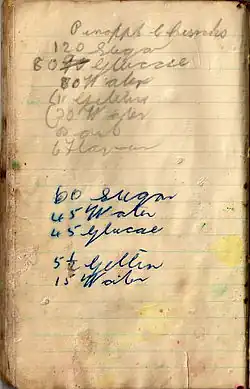 Pinappl Chunks
120 Sugar
80 Glucae
80 Water
Gellin
20 Water
6 Flavour
60 Sugar
45 Water
45 Glucae
5½ Gellin
15 Water